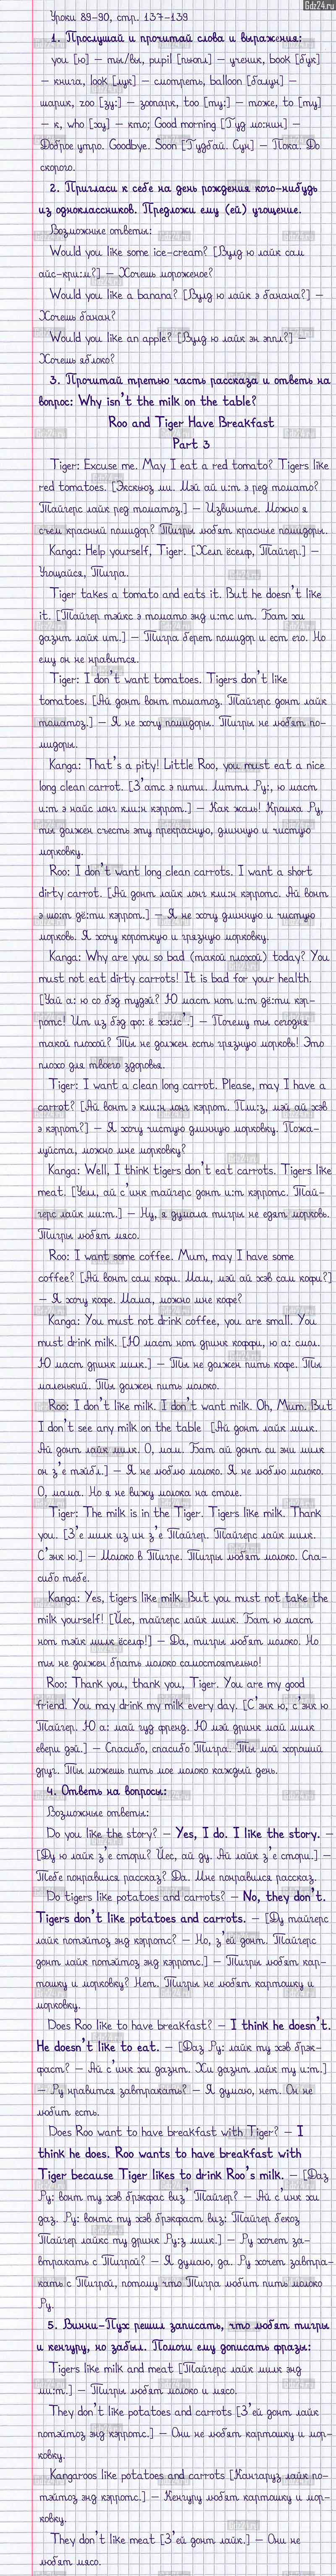 Gdz24.ru
Уроки 89-90, стр. 137-139
1. Прослушай и прочитай слова и выражения:
you [ю] – ты/вы, pupil [пьюпл] – ученик, book [бук]
– книга, look [лук] – смотреть, balloon [балун] –
шарик, zoo [зу:] – зоопарк, too [ту:] – тоже, to [ту]
– к, who [ху] – кто; Good morning [Гуд монин] –
Доброе утро. Goodbye. Soon [Гудбай. Сун] – Пока. До
скорого.
2. Пригласи к себе на день рождения кого-нибудь
из одноклассников. Предложи ему (ей) угощение.
Возможные ответы:
Would you like some ice-cream? [Вулд ю лайк сам
айс-кри:м?] – Хочешь мороженое?
Would you like a banana? [Вулд ю лайк э банана?] –
Хочешь банан?
Would you like an apple? [Вулд ю лайк эн эпл?] –
Хочешь яблоко?
3. Прочитай третью часть рассказа и ответь на
вопрос: Why isn't the milk on the table?
Roo and Tiger Have Breakfast
Part 3
Tiger: Excuse me. May I eat a red tomato? Tigers like
red tomatoes. [Экскюз ми. Мэй ай и:т э ред томато?
Тайгерс лайк ред томатоз.] – Извините. Можно я
съем красный помидор? Тигры любят красные помидоры.
Kanga: Help yourself, Tiger. [Хелп ёселф, Тайгер.] –
Угощайся, Тигра.
Tiger takes a tomato and eats it. But he doesn't like
it. [Тайгер тэйкс э томато энд и:тс ит. Бат хи
дазнт лайк ит.] – Тигра берет помидор и ест его. Но
ему он не нравится.
Tiger: I don't want tomatoes. Tigers don't like
tomatoes. [Ай донт вонт томатоз. Тайгерс донт лайк
томатоз.] – Я не хочу помидоры. Тигры не любят по-
мидоры.
Kanga: That's a pity! Little Roo, you must eat a nice
long clean carrot. [З'атс э пити. Литтл Ру:, ю маст
и:т э найс лонг кли:н кэррот.] – Как жаль! Крошка Ру,
ты должен съесть эту прекрасную, длинную и чистую
морковку.
Roo: I don't want long clean carrots. I want a short
dirty carrot. [Ай донт лайк лонг кли:н кэрротс. Ай вонт
э шо:т дё:ти кэррот.] – Я не хочу длинную и чистую
морковь. Я хочу короткую и грязную морковку.
Kanga: Why are you so bad (такой плохой) today? You
must not eat dirty carrots! It is bad for your health.
[Уай а: ю со бэд тудэй? Ю маст нот и:т дё:ти кэр-
ротс! Ит из бэд фо: ё хэлс'.] – Почему ты сегодня
такой плохой? Ты не должен есть грязную морковь! Это
плохо для твоего здоровья.
Tiger: I want a clean long carrot. Please, may I have a
carrot? [Ай вонт э кли:н лонг кэррот. Пли:з, мэй ай хэв
э кэррот?] – Я хочу чистую длинную морковку. Пожа-
луйста, можно мне морковку?
Kanga: Well, I think tigers don't eat carrots. Tigers like
meat. [Уел, ай с'инк тайгерс донт и:т кэрротс. Тай-
герс лайк ми:т.] – Ну, я думала тигры не едят морковь.
Тигры любят мясо.
Roo: I want some coffee. Mum, may I have some
coffee? [Ай вонт сам кофи. Мам, мэй ай хэв сам кофи?]
– Я хочу кофе. Мама, можно мне кофе?
Kanga: You must not drink coffee, you are small. You
must drink milk. [Ю маст нот дринк коффи, ю а: смол.
Ю маст дринк милк.] – Ты не должен пить кофе. Ты
маленький. Ты должен пить молоко.
Roo: I don't like milk. I don't want milk. Oh, Mum. But
I don't see any milk on the table [Ай донт лайк милк.
Ай донт лайк милк. О, мам. Бат ай донт си эни милк
он з'е тэйбл.] – Я не люблю молоко. Я не люблю молоко.
О, мама. Но я не вижу молока на столе.
Tiger: The milk is in the Tiger. Tigers like milk. Thank
you. [З'е милк из ин з'е Тайгер. Тайгерс лайк милк.
С'энк ю.] – Молоко в Тигре. Тигры любят молоко. Спа-
сибо тебе.
Kanga: Yes, tigers like milk. But you must not take the
milk yourself! [Йес, тайгерс лайк милк. Бат ю маст
нот тэйк милк ёселф!] – Да, тигры любят молоко. Но
ты не должен брать молоко самостоятельно!
Roo: Thank you, thank you, Tiger. You are my good
friend. You may drink my milk every day. [С'энк ю, с'энк ю
Тайгер. Ю а: май гуд френд. Ю мэй дринк май милк
евери дэй.] – Спасибо, спасибо Тигра. Ты мой хороший
друг. Ты можешь пить мое молоко каждый день.
4. Ответь на вопросы:
Возможные ответы:
Do you like the story? – Yes, I do. I like the story. –
[Ду ю лайк з'е стори? Йес, ай ду. Ай лайк з'е стори.] –
Тебе понравился рассказ? Да. Мне понравился рассказ.
Do tigers like potatoes and carrots? – No, they don't.
Tigers don't like potatoes and carrots. – [Ду тайгерс
лайк потэйтоз энд кэрротс? – Но, з'ей донт. Тайгерс
донт лайк потэйтоз энд кэрротс.] – Тигры любят кар-
тошку и морковку? Нет. Тигры не любят картошку и
морковку.
Does Roo like to have breakfast? – I think he doesn't.
He doesn't like to eat. – [Даз Ру: лайк ту хэв брэк-
фаст? – Ай с'инк хи дазнт. Хи дазнт лайк ту и:т.]
– Ру нравится завтракать? – Я думаю, нет. Он не
любит есть.
Does Roo want to have breakfast with Tiger? – I
think he does. Roo wants to have breakfast with
Tiger because Tiger likes to drink Roo's milk. – [Даз
Ру: вонт ту хэв брэкфас виз' Тайгер? – Ай с'инк хи
даз. Ру: вонтс ту хэв брэкфаст виз: Тайгер бекоз
Тайгер лайкс ту дринк Ру:з милк.] – Ру хочет за-
втракать с Тигрой? – Я думаю, да. Ру хочет завтра-
кать с Тигрой, потому что Тигра любит пить молоко
Ру.
5. Винни-Пух решил записать, что любят тигры
и кенгуру, но забыл. Помоги ему дописать фразы:
Tigers like milk and meat [Тайгерс лайк милк энд
ми:т.] – Тигры любят молоко и мясо.
They don't like potatoes and carrots [З'ей донт лайк
потэйтоз энд кэрротс.] – Они не любят картошку и мор-
ковку.
Kangaroos like potatoes and carrots [Кангаруз лайк по-
тэйтоз энд кэрротс.] – Кенгуру любят картошку и мор-
ковку.
They don't like meat [З'ей донт лайк.] – Они не
любят мясо.